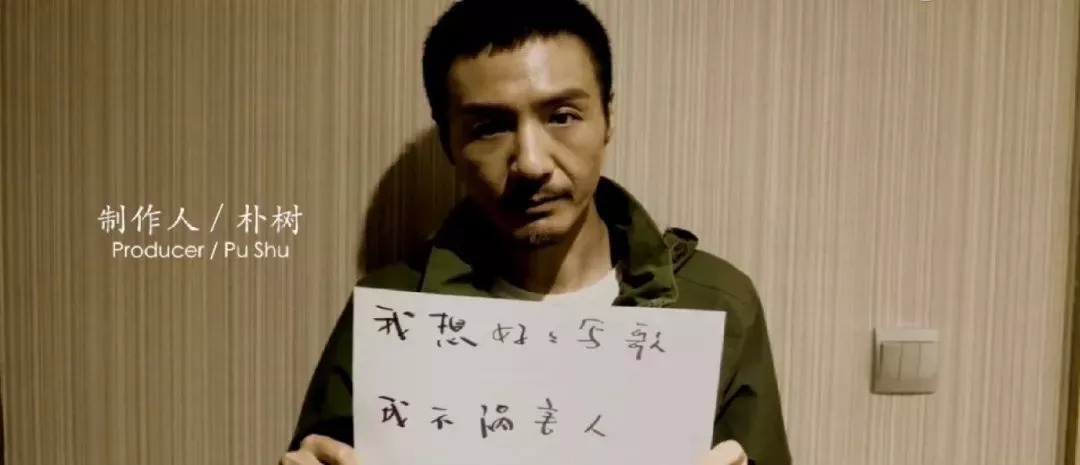 制作人 / 朴树
Producer / Pu Shu
我想好々写歌
我不祸害人